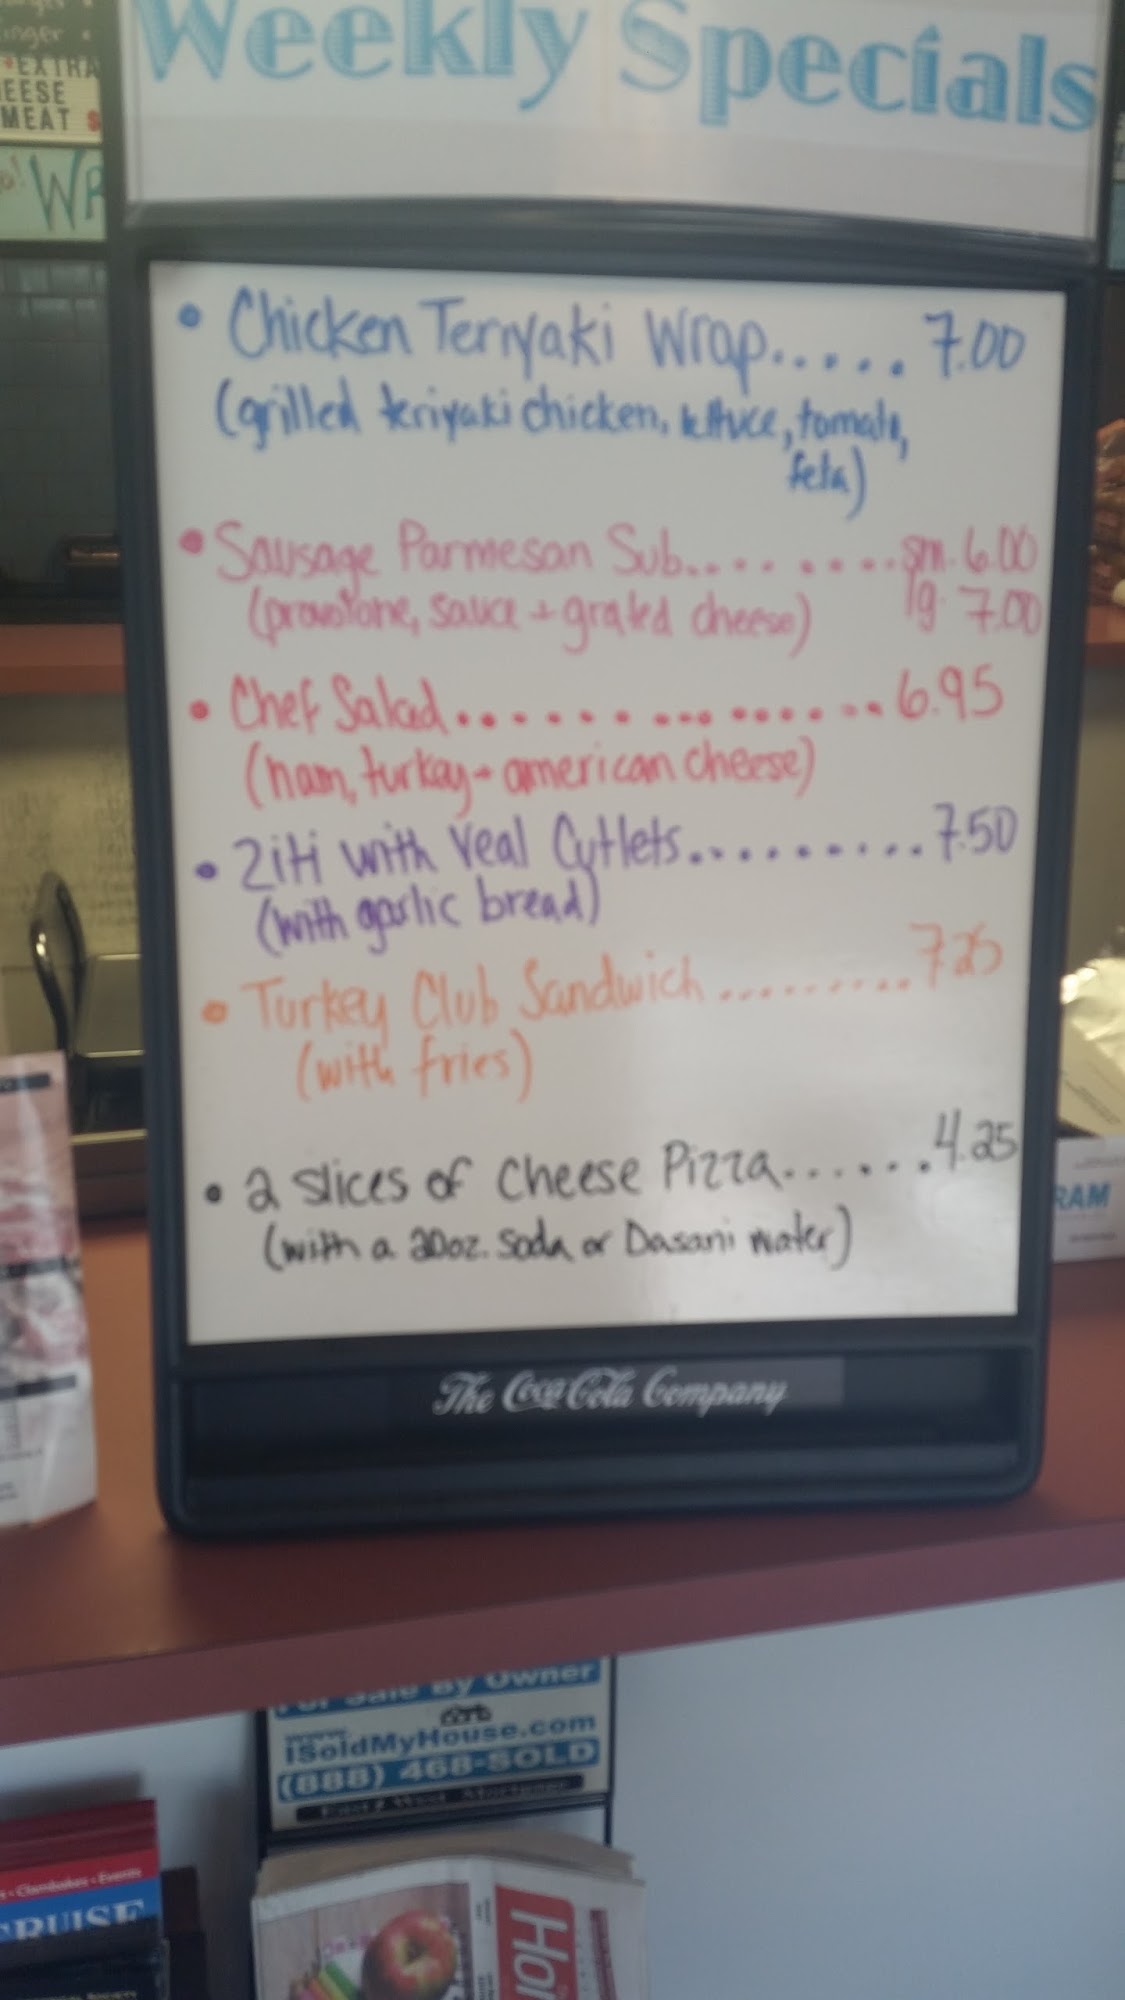 Weekly Specials
EXTRA
EESE
MEAT
WR
• Chicken Teriyaki Wrap..... 7.00
(grilled teriyaki chicken, lettuce, tomato,
feta)
• Sausage Parmesan Sub........ sm. 6.00
(provolone, sauce + grated cheese) lg. 7.00
• Chef Salad................ 6.95
(ham, turkey + american cheese)
• Ziti with Veal Cutlets......... 7.50
(with garlic bread)
• Turkey Club Sandwich ......... 7.25
(with fries)
• 2 slices of Cheese Pizza...... 4.25
(with a 20oz. soda or Dasani water)
RAM
The Coca-Cola Company
For Sale By Owner
www.
iSoldMyHouse.com
(888) 468-SOLD
East West Mortgage
Clambakes • Events
CRUISE
SOCIETY
Hor